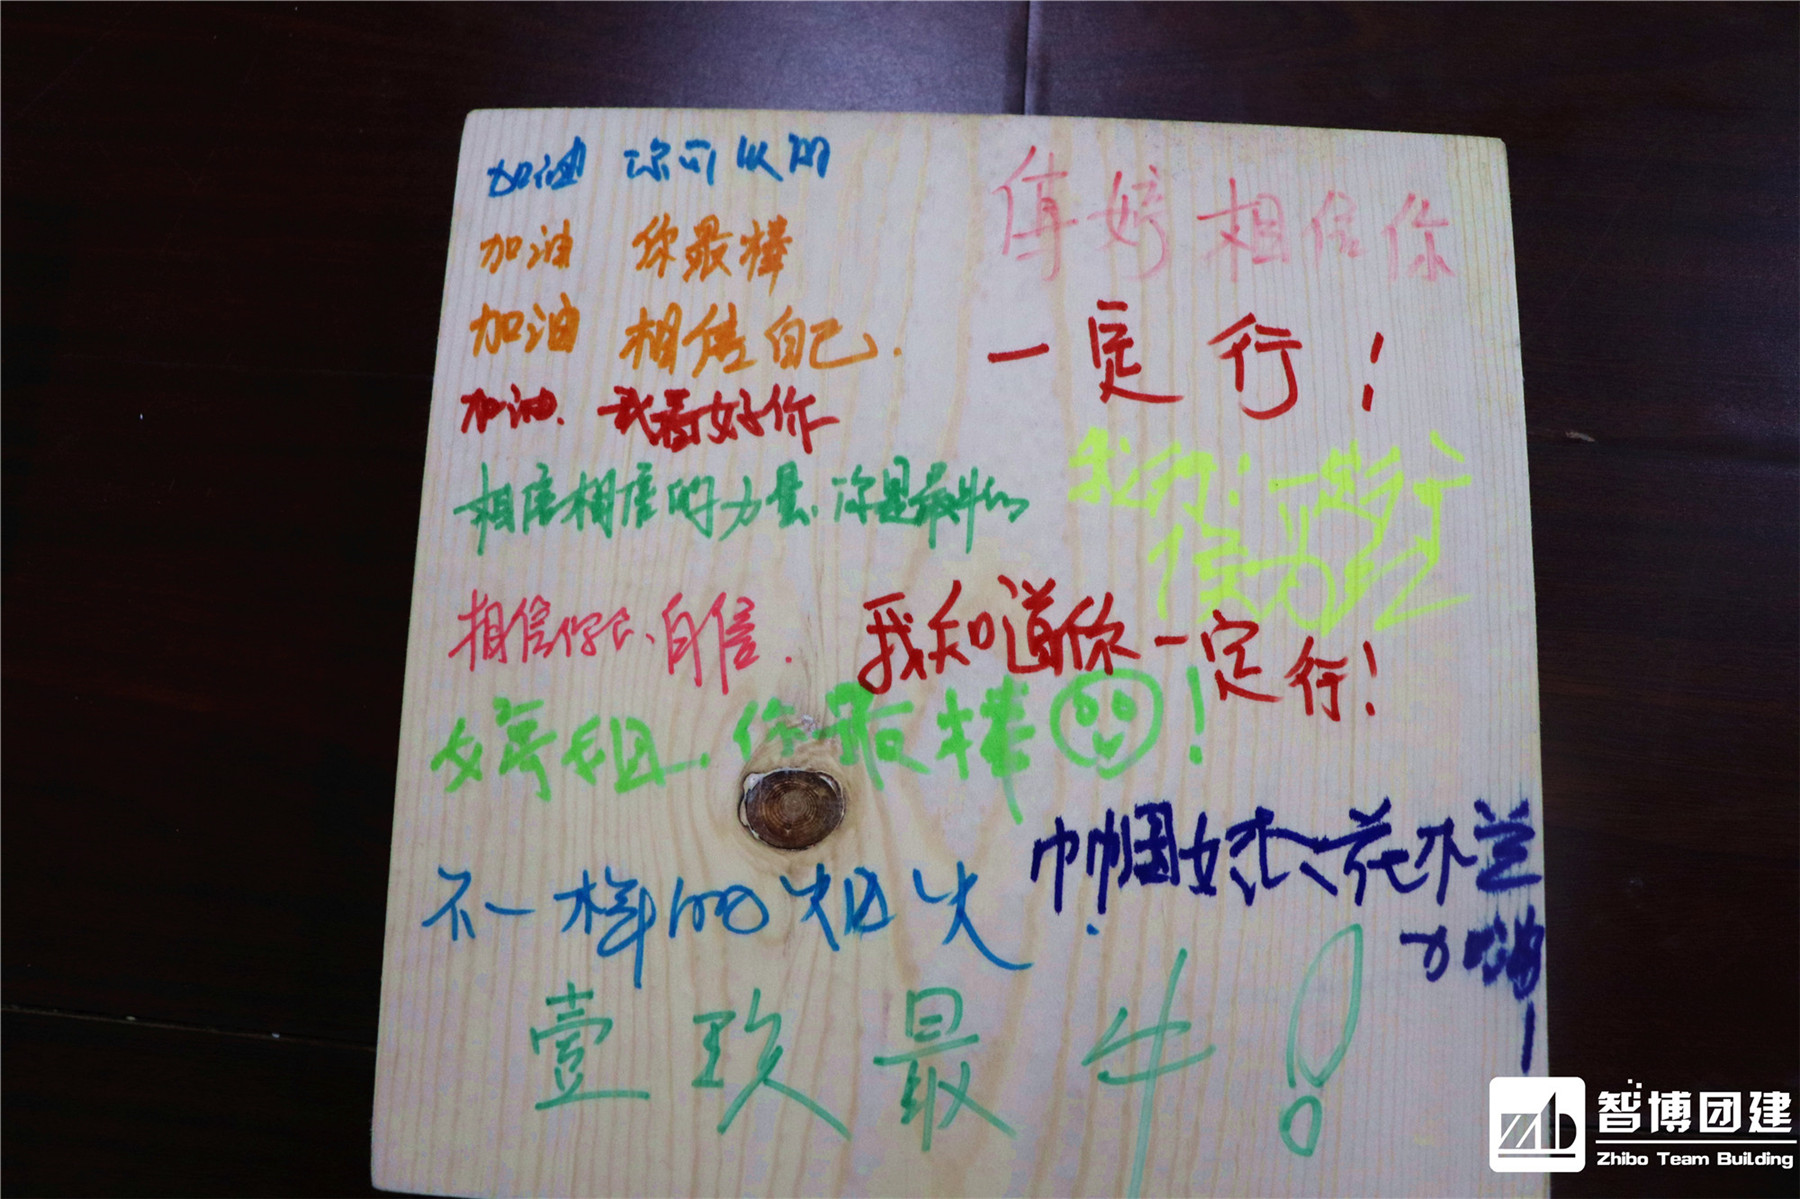 加油 你可以的
加油 你最棒
加油 相信自己.
加油. 我看好你
相信相信的力量、你是最牛的
相信你自己、自信.
婷姐.你最棒!
不一样的烟火.
壹玖最牛!
婷相信你
一定行!
我行!一定行
我知道你一定行!
巾帼女杰花木兰
加油!
智博团建
Zhibo Team Building